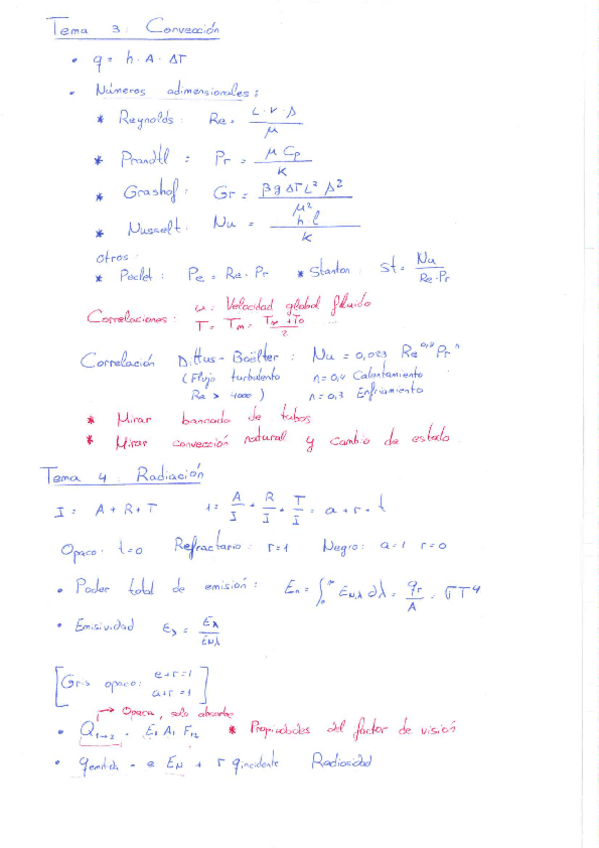 Tema 3: Convección
• q = h · A · ΔT
• Números adimensionales:
* Reynolds: Re = L · v · ρ / μ
* Prandtl: Pr = μ Cp / K
* Grashof: Gr = β g ΔT L³ ρ² / μ²
* Nusselt: Nu = h l / K
otros:
* Peclet: Pe = Re · Pr * Stanton: St = Nu / Re · Pr
Correlaciones: u: Velocidad global fluido
T = Tm = T∞ + To / 2
Correlación Dittus - Boëlter: Nu = 0,023 Re^0,8 Pr^n
(Flujo turbulento n = 0,4 Calentamiento
Re > 4000) n = 0,3 Enfriamiento
* Mirar bancada de tubos
* Mirar convección natural y cambio de estado
Tema 4: Radiación
I = A + R + T 1 = A/I + R/I + T/I = a + r + t
Opaco: t = 0 Refractario: r = 1 Negro: a = 1 r = 0
• Poder total de emisión: En = ∫₀^∞ ENλ dλ = qr / A = σT⁴
• Emisividad ελ = Eλ / ENλ
[Gris opaco: e + r = 1
a + r = 1]
→ Opaca, solo absorbe
• Q1→2 = E1 A1 F12 * Propiedades del factor de visión
• qemitida = e EN + r qincidente Radiosidad